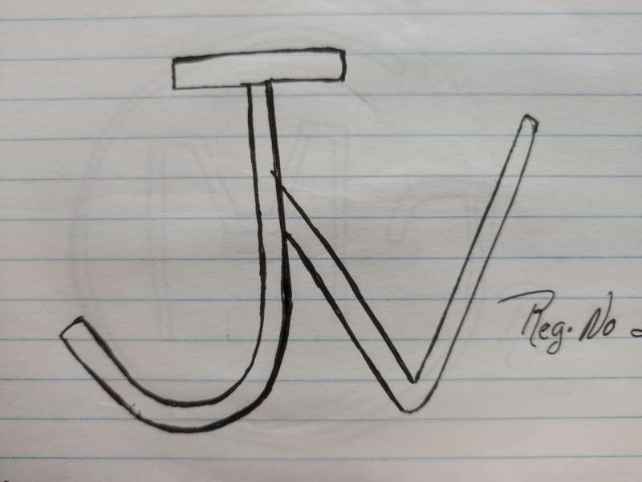 JV
Reg. No